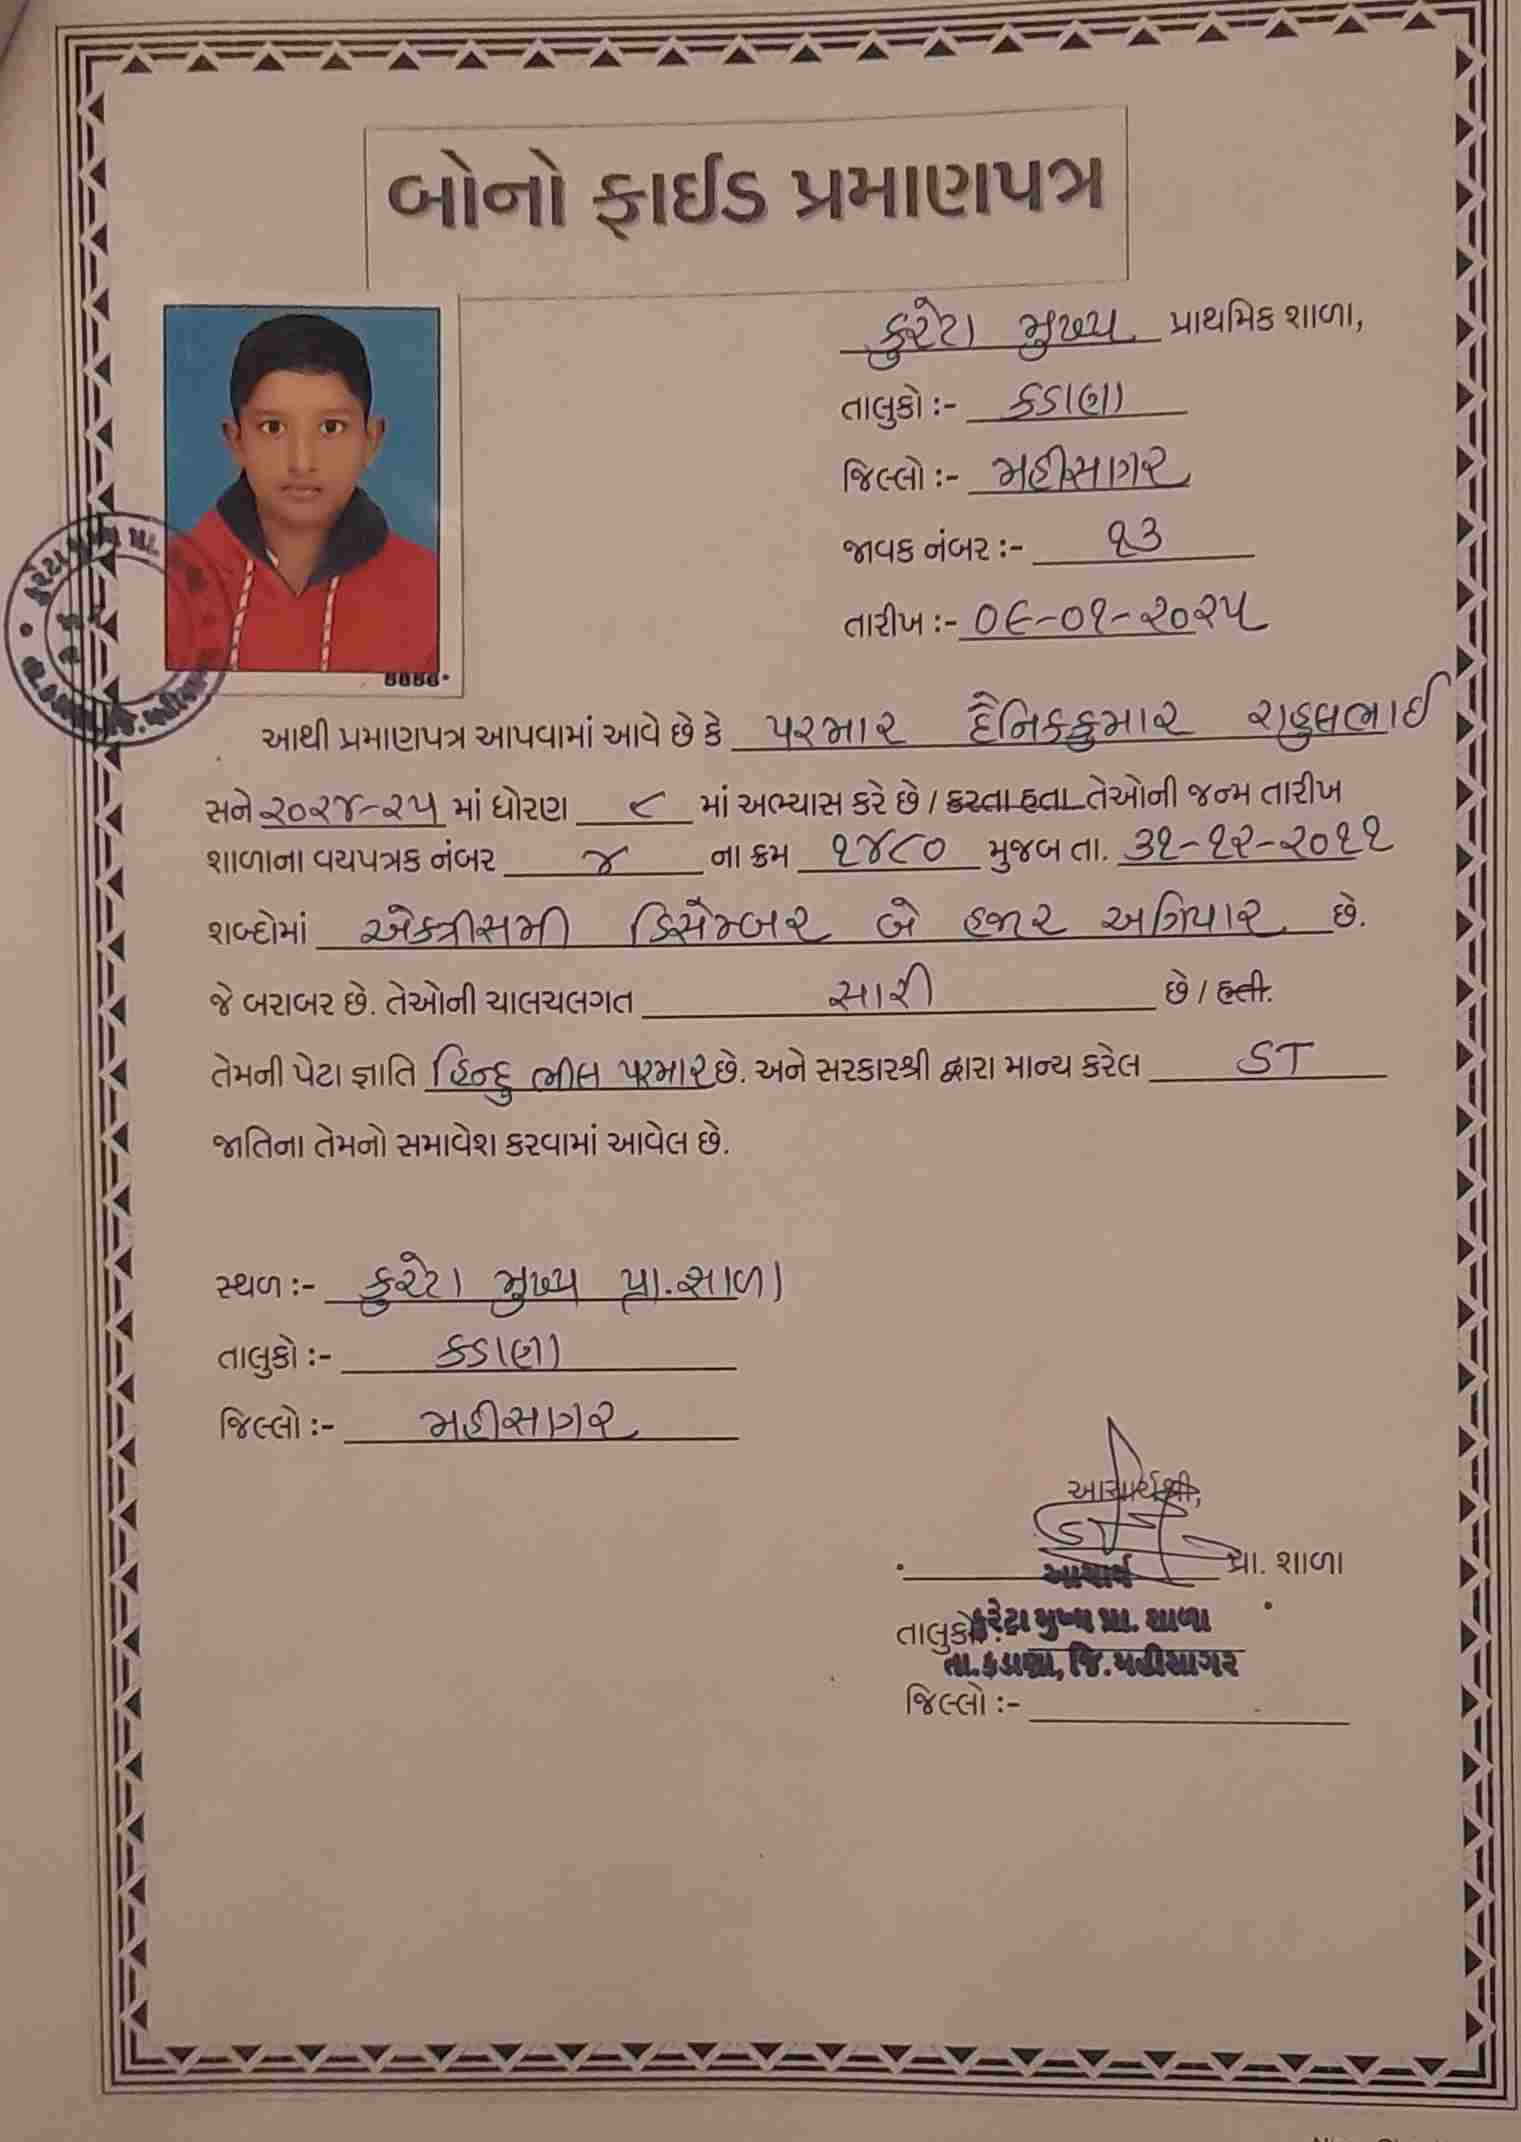 બોનો ફાઈડ પ્રમાણપત્ર
કુરેટા મુખ્ય પ્રાથમિક શાળા,
તાલુકો :- કડાણા
જિલ્લો :- મહીસાગર
જાવક નંબર :- ૧૩
તારીખ :- ૦૯-૦૧-૨૦૨૫
આથી પ્રમાણપત્ર આપવામાં આવે છે કે પરમાર દૈનિકકુમાર રાહુલભાઈ
સને ૨૦૨૪-૨૫ માં ધોરણ ૮ માં અભ્યાસ કરે છે / કરતા હતા તેઓની જન્મ તારીખ
શાળાના વયપત્રક નંબર ૪ ના ક્રમ ૧૪૮૦ મુજબ તા. ૩૧-૧૨-૨૦૧૧
શબ્દોમાં એકત્રીસમી ડિસેમ્બર બે હજાર અગિયાર છે.
જે બરાબર છે. તેઓની ચાલચલગત સારી છે / હતી.
તેમની પેટા જ્ઞાતિ હિન્દુ ભીલ પરમાર છે. અને સરકારશ્રી દ્વારા માન્ય કરેલ ST
જાતિના તેમનો સમાવેશ કરવામાં આવેલ છે.
સ્થળ :- કુરેટા મુખ્ય પ્રા. શાળા
તાલુકો :- કડાણા
જિલ્લો :- મહીસાગર
આચાર્યશ્રી,
પ્રા. શાળા
આચાર્ય
તાલુકો
કુરેટા મુખ્ય પ્રા. શાળા
તા.કડાણા, જિ.મહીસાગર
જિલ્લો :-